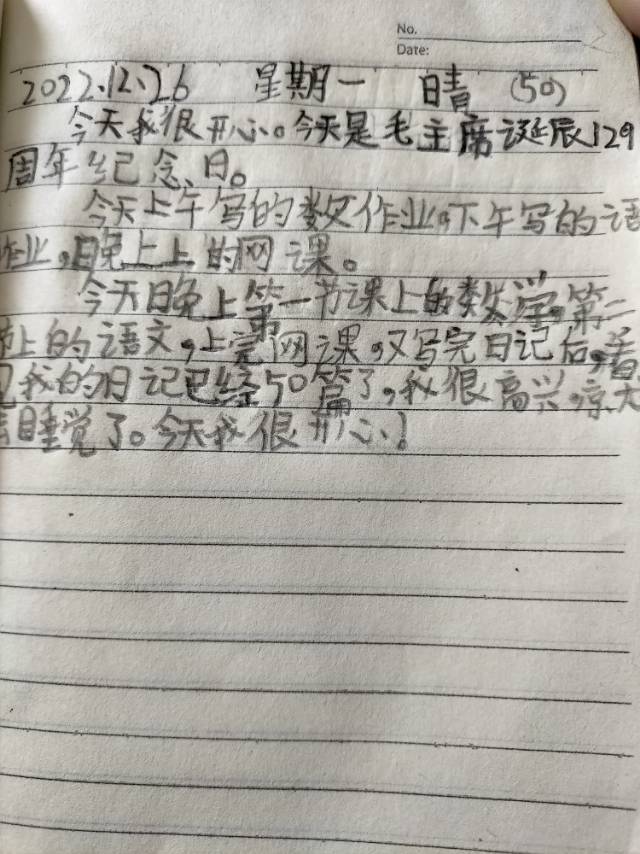 No.
Date:
2022.12.26 星期一 晴 (50)
今天我很开心。今天是毛主席诞辰129
周年纪念日。
今天上午写的数文作业,下午写的语
作业,晚上上的网课。
今天晚上第一节课上的数学,第二
节上的语文,上完网课,又写完日记后,看
见我的日记已经50篇了,我很高兴,
去睡觉了。今天我很开心!